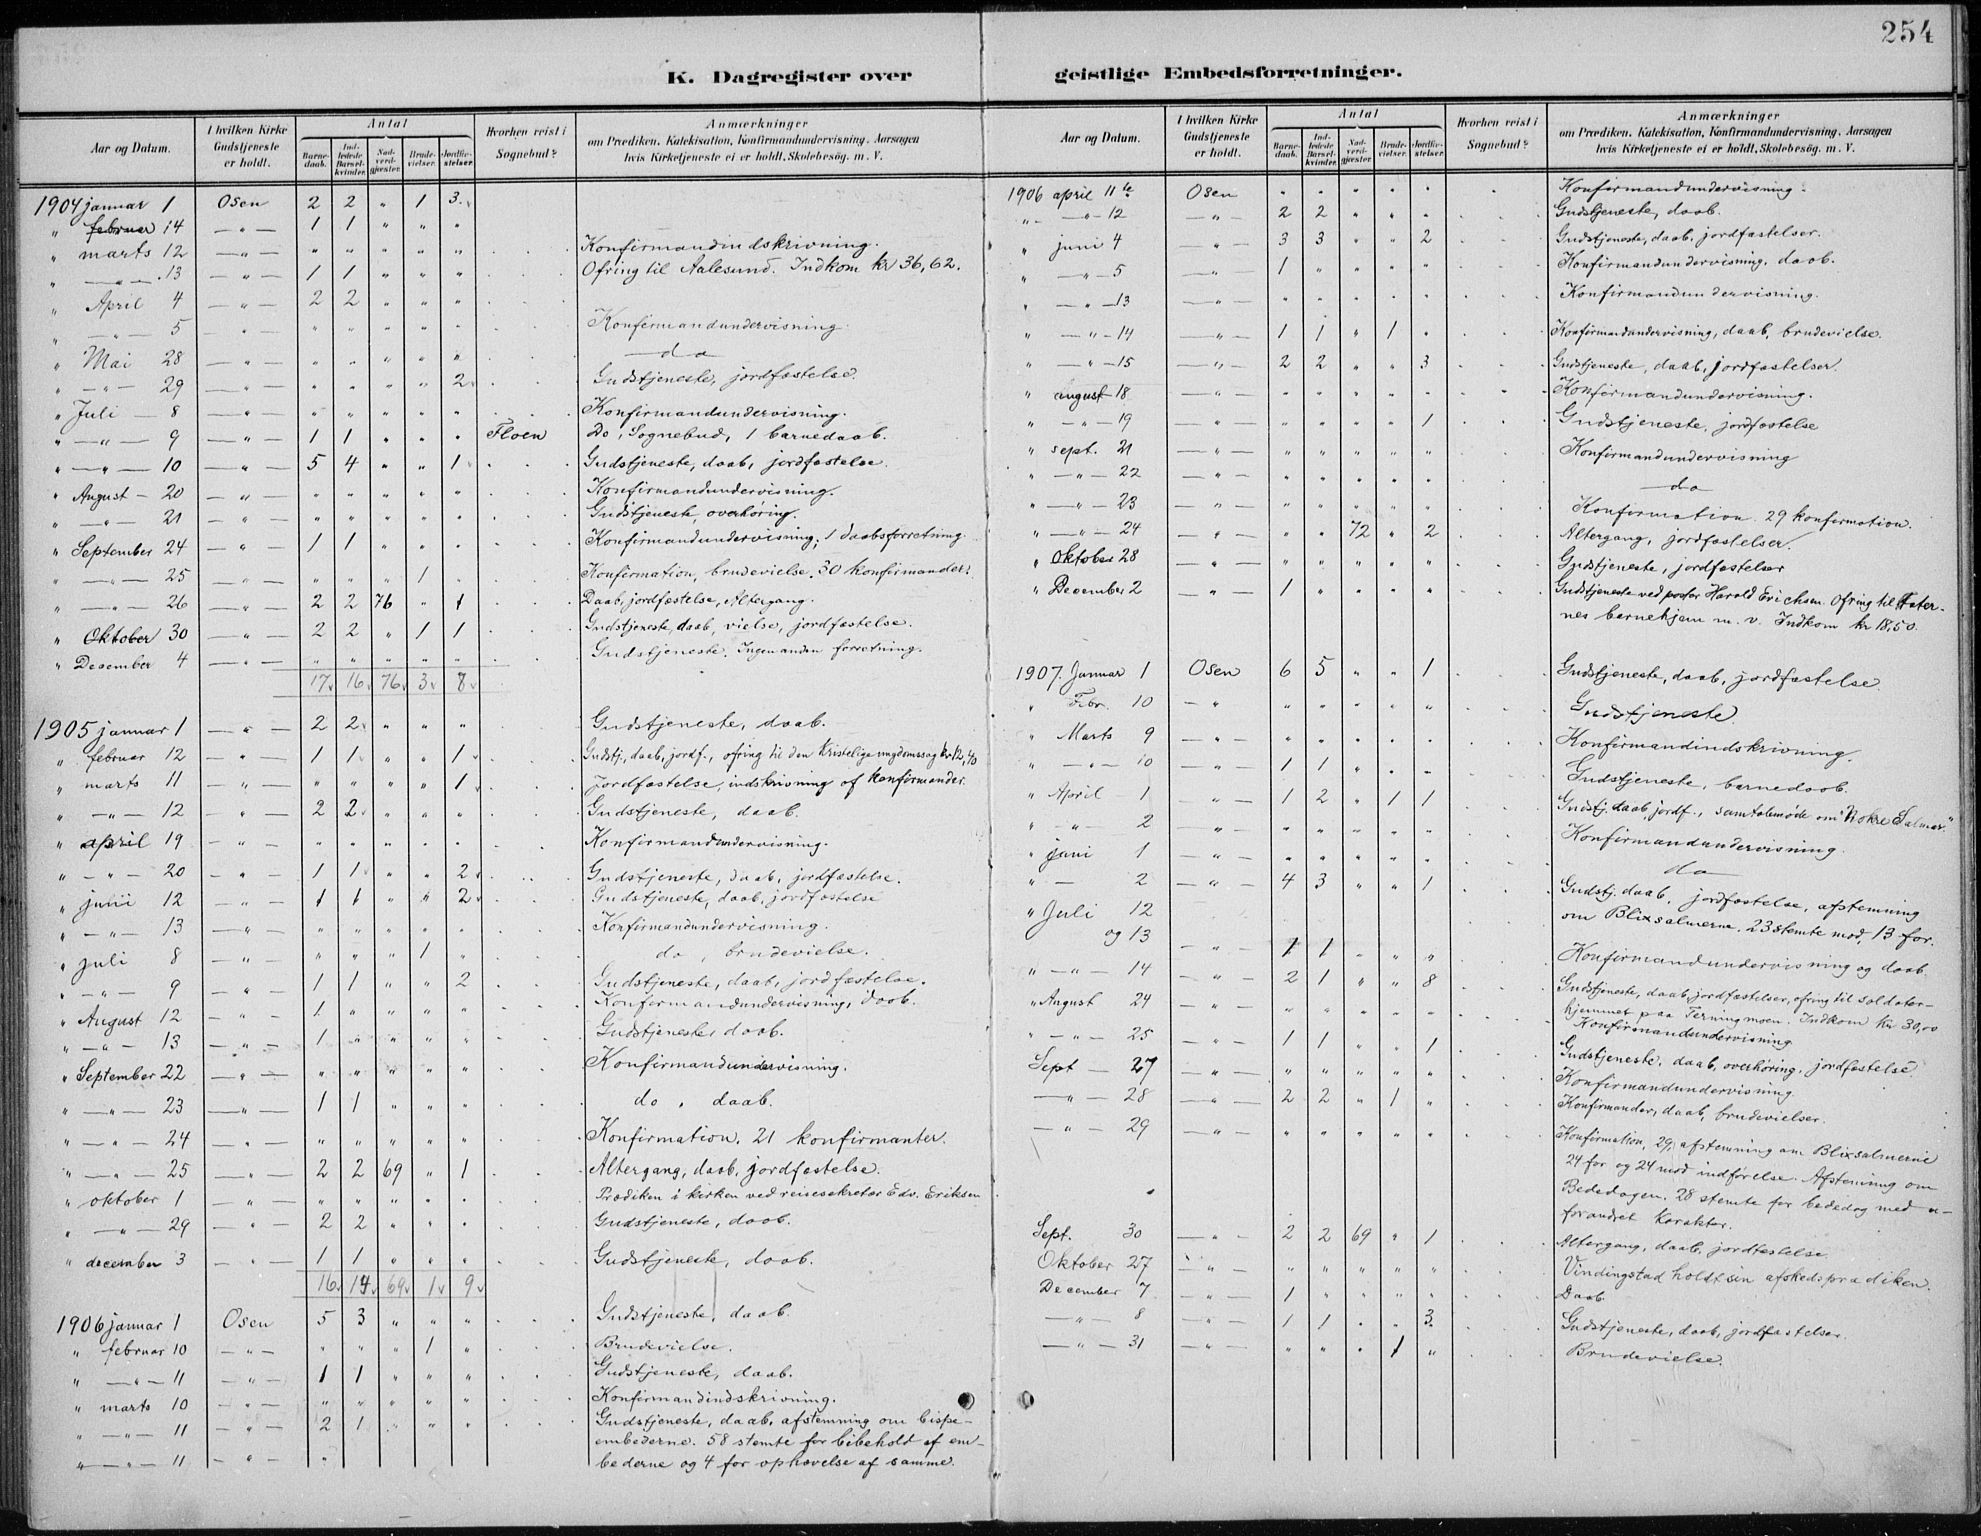 254
K. Dagregister over geistlige Embedsforretninger.
Aar og Datum. I hvilken Kirke Gudstjeneste er holdt. Antal Barnedaab. Indledede Barselkvinder. Nadverdgjæster. Brudevielser. Jordfæstelser. Hvorhen reist i Sognebud? Anmærkninger om Prædiken, Katekisation, Konfirmandundervisning. Aarsagen hvis Kirketjeneste ei er holdt. Skolebesøg. m. V.
1904 januar 1 Osen 2 2 „ 1 3
„ februar 14 — „ — 1 1 „ „ „
„ marts 12 — „ — „ „ „ „ „ Konfirmandindskrivning.
„ — „ — 13 — „ — 1 1 „ „ „ Ofring til Aalesund. Indkom kr 36,62.
„ April 4 — „ — 2 2 „ „ „
„ — „ — 5 — „ — „ „ „ „ „ Konfirmandundervisning
„ Mai 28 — „ — „ „ „ „ „ — do —
„ — „ — 29 — „ — „ „ „ „ 2 Gudstjeneste, jordfæstelse.
„ Juli — 8 — „ — „ „ „ „ „ Konfirmandundervisning.
„ — „ — 9 — „ — 1 1 „ „ „ Floen Do, Sognebud, 1 barnedaab.
„ — „ — 10 — „ — 5 4 „ „ 1 Gudstjeneste, daab, jordfæstelse.
„ August — 20 — „ — „ „ „ „ „ Konfirmandundervisning.
„ — „ — 21 — „ — „ „ „ „ „ Gudstjeneste, overhøring.
„ September 24 — „ — 1 1 „ „ „ Konfirmandundervisning, 1 daabsforretning.
„ — „ — 25 — „ — „ „ „ 1 „ Konfirmation, brudevielse. 30 konfirmander.
„ — „ — 26 — „ — 2 2 76 „ 1 Daab, jordfæstelse, Altergang.
„ Oktober 30 — „ — 2 2 „ 1 1 Gudstjeneste, daab, vielse, jordfæstelse.
„ Desember 4 — „ — „ „ „ „ „ Gudstjeneste. Ingen anden forretning.
17 16 76 3 8
1905 januar 1 — „ — 2 2 „ „ „ Gudstjeneste, daab.
„ februar 12 — „ — 1 1 „ „ 1 Gudstj., daab, jordf., ofring til den Kristelige ungdomssag kr 12,40
„ marts 11 — „ — „ „ „ „ 1 Jordfæstelse, indskrivning af konfirmander.
„ — „ — 12 — „ — 2 2 „ „ „ Gudstjeneste, daab.
„ april 19 — „ — „ „ „ „ „ Konfirmandundervisning.
„ — „ — 20 — „ — 1 1 „ „ 2 Gudstjeneste, daab, jordfæstelse.
„ juni 12 — „ — 1 1 „ „ 2 Gudstjeneste, daab, jordfæstelse
„ — „ — 13 — „ — „ „ „ „ „ Konfirmandundervisning.
„ juli 8 — „ — „ „ „ 1 „ do, brudevielse.
„ — „ — 9 — „ — 1 1 „ „ 2 Gudstjeneste, daab, jordfæstelse.
„ August 12 — „ — 1 „ „ „ „ Konfirmandundervisning, daab.
„ — „ — 13 — „ — 1 „ „ „ „ Gudstjeneste, daab.
„ September 22 — „ — „ „ „ „ „ Konfirmandundervisning.
„ — „ — 23 — „ — 1 1 „ „ „ do, daab.
„ — „ — 24 — „ — „ „ „ „ „ Konfirmation. 21 konfirmanter.
„ — „ — 25 — „ — 2 2 69 „ 1 Altergang, daab, jordfæstelse.
„ oktober 1 — „ — „ „ „ „ „ Prædiken i kirken ved reisesekretær Edv. Eriksen
„ — „ — 29 — „ — 2 2 „ „ „ Gudstjeneste, daab.
„ december 3 — „ — 1 1 „ „ „ Gudstjeneste, daab.
16 14 69 1 9
1906 januar 1 Osen 5 3 „ „ „ Gudstjeneste, daab.
„ februar 10 — „ — „ „ „ 1 „ Brudevielse.
„ — „ — 11 — „ — 1 1 „ „ „ Gudstjeneste, daab.
„ marts 10 — „ — „ „ „ „ „ Konfirmandindskrivning.
„ — „ — 11 — „ — 2 1 „ „ „ Gudstjeneste, daab, afstemning om bispe-
embederne. 58 stemte for bibehold af em-
„ — „ — 11 — „ — „ bederne og 4 for ophævelse af samme.
Aar og Datum. I hvilken Kirke Gudstjeneste er holdt. Antal Barnedaab. Indledede Barselkvinder. Nadverdgjæster. Brudevielser. Jordfæstelser. Hvorhen reist i Sognebud? Anmærkninger om Prædiken, Katekisation, Konfirmandundervisning, Aarsagen hvis Kirketjeneste ei er holdt, Skolebesøg. m. V.
1906 april 11te Osen „ „ „ „ „ Konfirmandundervisning.
„ — „ — 12 — „ — 2 2 „ „ „ Gudstjeneste, daab.
„ juni 4 — „ — 3 3 „ „ 2 Gudstjeneste, daab, jordfæstelser.
„ — „ — 5 — „ — 1 „ „ „ „ Konfirmandundervisning, daab.
„ — „ — 13 — „ — „ „ „ „ „ Konfirmandundervisning.
„ — „ — 14 — „ — 1 1 „ 1 „ Konfirmandundervisning, daab, brudevielse.
„ — „ — 15 — „ — 2 2 „ „ 3 Gudstjeneste, daab, jordfæstelser.
„ august 18 — „ — „ „ „ „ „ Konfirmandundervisning.
„ — „ — 19 — „ — „ „ „ „ 1 Gudstjeneste, jordfæstelse
„ sept. 21 — „ — „ „ „ „ „ Konfirmandundervisning
„ — „ — 22 — „ — „ „ „ „ „ — do —
„ — „ — 23 — „ — „ „ „ „ „ Konfirmation. 29 konfirmation.
„ — „ — 24 — „ — „ „ 72 „ 2 Altergang, jordfæstelser.
„ Oktober 28 — „ — „ „ „ „ „ Gudstjeneste, jordfæstelser
„ December 2 — „ — 1 „ „ „ „ Gudstjeneste ved pastor Harald Erichsen. Ofring til Tater-
nes barnehjem m. v. Indkom kr 18,50.
1907. Januar 1 Osen 6 5 „ „ 1 Gudstjeneste, daab, jordfæstelse.
„ Febr. 10 — „ — „ „ „ „ „ Gudstjeneste.
„ Marts 9 — „ — „ „ „ „ „ Konfirmandindskrivning.
„ — „ — 10 — „ — 1 1 „ „ „ Gudstjeneste, barnedaab.
„ April — 1 — „ — 1 2 „ 1 1 Gudstj. daab, jordf., samtalemøde om "Nokre Salmar."
„ — „ — 2 — „ — „ „ „ „ „ Konfirmandundervisning.
„ juni 1 — „ — „ „ „ „ „ do
„ — 2 — „ — 4 3 „ „ 1 Gudstj. daab, jordfæstelse, afstemning
om Blixsalmerne. 23 stemte mod, 13 for.
„ Juli 12
og 13 — „ — 1 1 „ „ „ Konfirmandundervisning og daab.
„ — „ — 14 — „ — 2 1 „ „ 8 Gudstjeneste, daab, jordfæstelser, ofring til soldater-
hjemmet paa Terningmoen. Indkom kr 30,00
„ August 24 — „ — „ „ „ „ „ Konfirmandundervisning
„ — „ — 25 — „ — 1 1 „ „ 1 Gudstjeneste, daab, overhøring, jordfæstelse.
Sept — 27 — „ — „ „ „ „ „ Konfirmandundervisning
— „ — 28 — „ — 2 2 „ 1 „ Konfirmander, daab, brudevielser.
— „ — 29 — „ — „ „ „ „ „ Konfirmation, 29, afstemning om Blixsalmerne
24 for og 24 mod indførelse. Afstemning om
Bededagen. 28 stemte for bededag med u-
forandret Karakter.
Sept. 30 — „ — 2 2 69 „ 1 Altergang, daab, jordfæstelse.
Oktober 27 — „ — „ „ „ „ „ Vindingstad holdt sin afskedsprædiken.
December 7 — „ — 1 „ „ „ „ Daab.
— „ — 8 — „ — 1 1 „ „ 3 Gudstjeneste, daab, jordfæstelser.
— „ — 31 — „ — „ „ „ 1 „ Brudevielse.